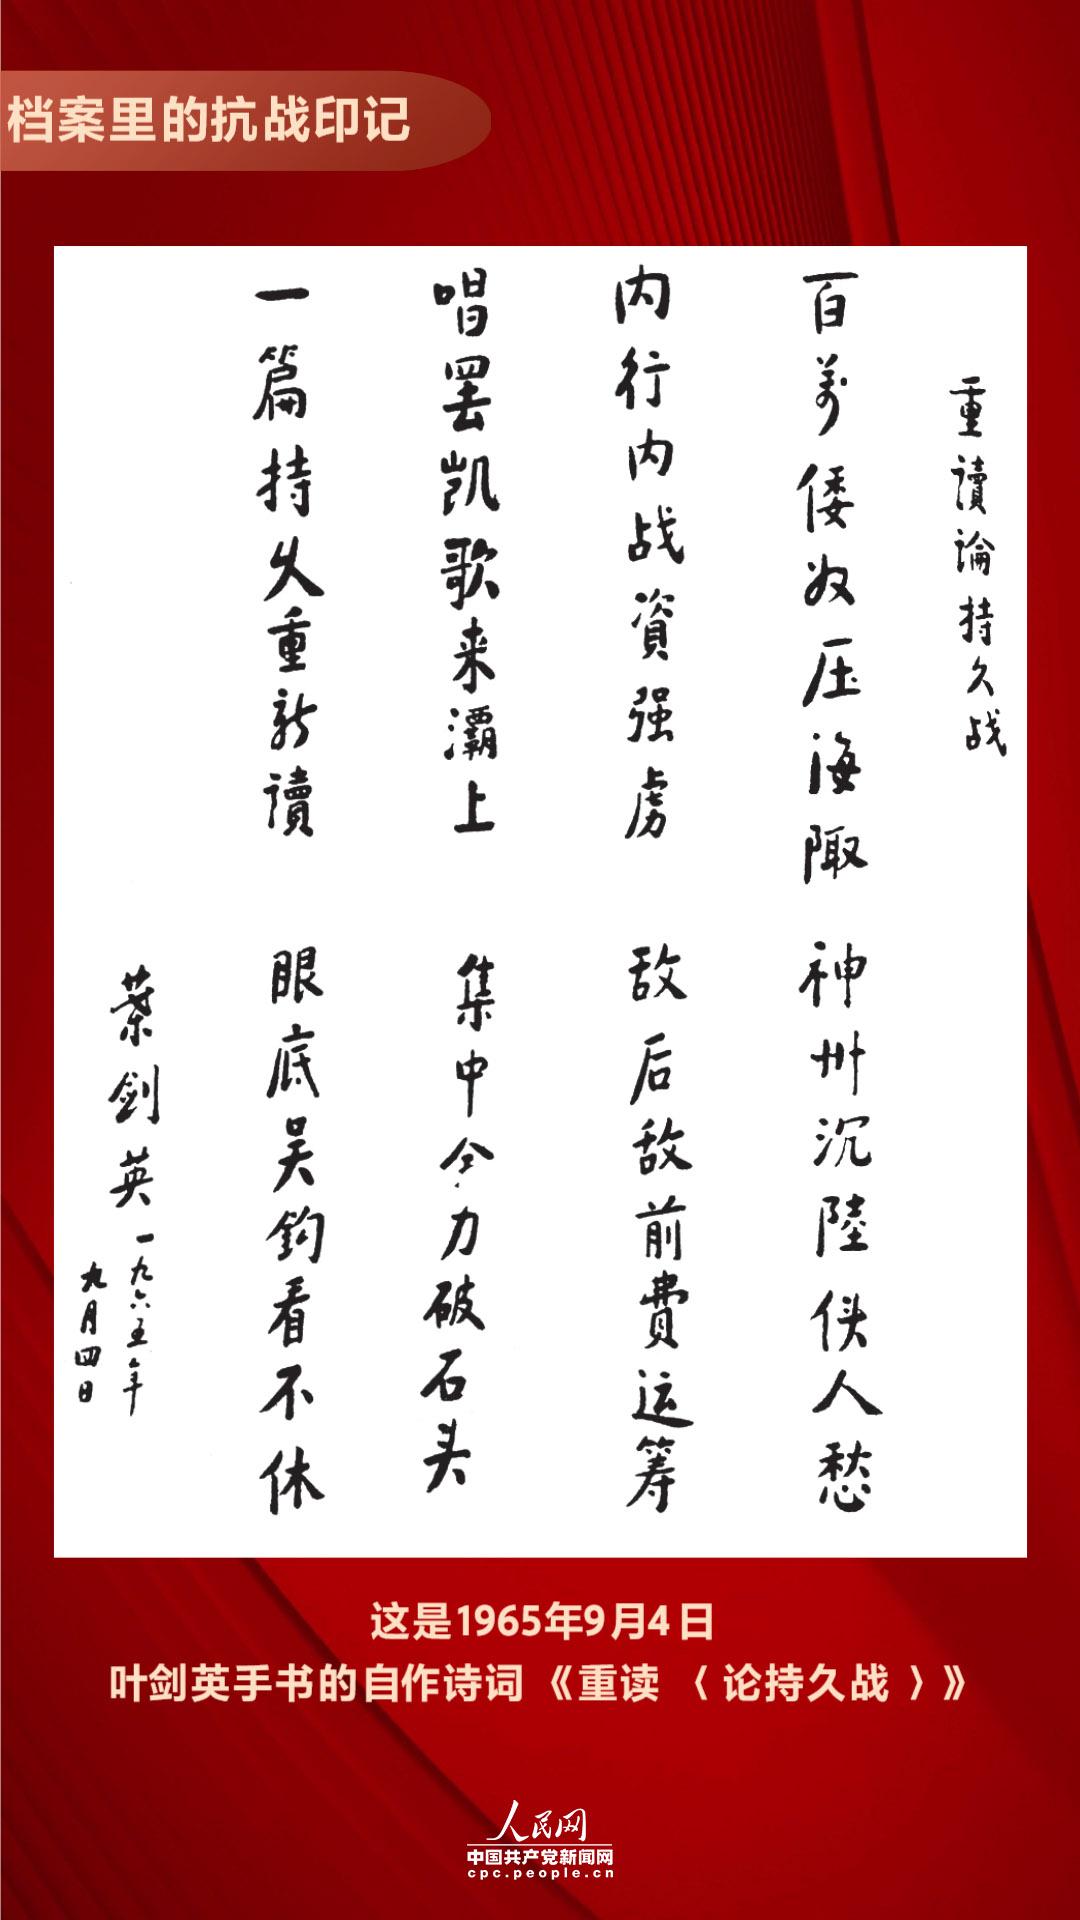 档案里的抗战印记
重讀論持久战
百万倭奴压海陬 神州沉陸使人愁
内行内战資强虏 敌后敌前費运筹
唱罢凯歌来灞上 集中全力破石头
一篇持久重新讀 眼底吴鈎看不休
葉剑英 一九六五年
九月四日
这是1965年9月4日
叶剑英手书的自作诗词《重读〈论持久战〉》
人民网
中国共产党新闻网
cpc.people.cn